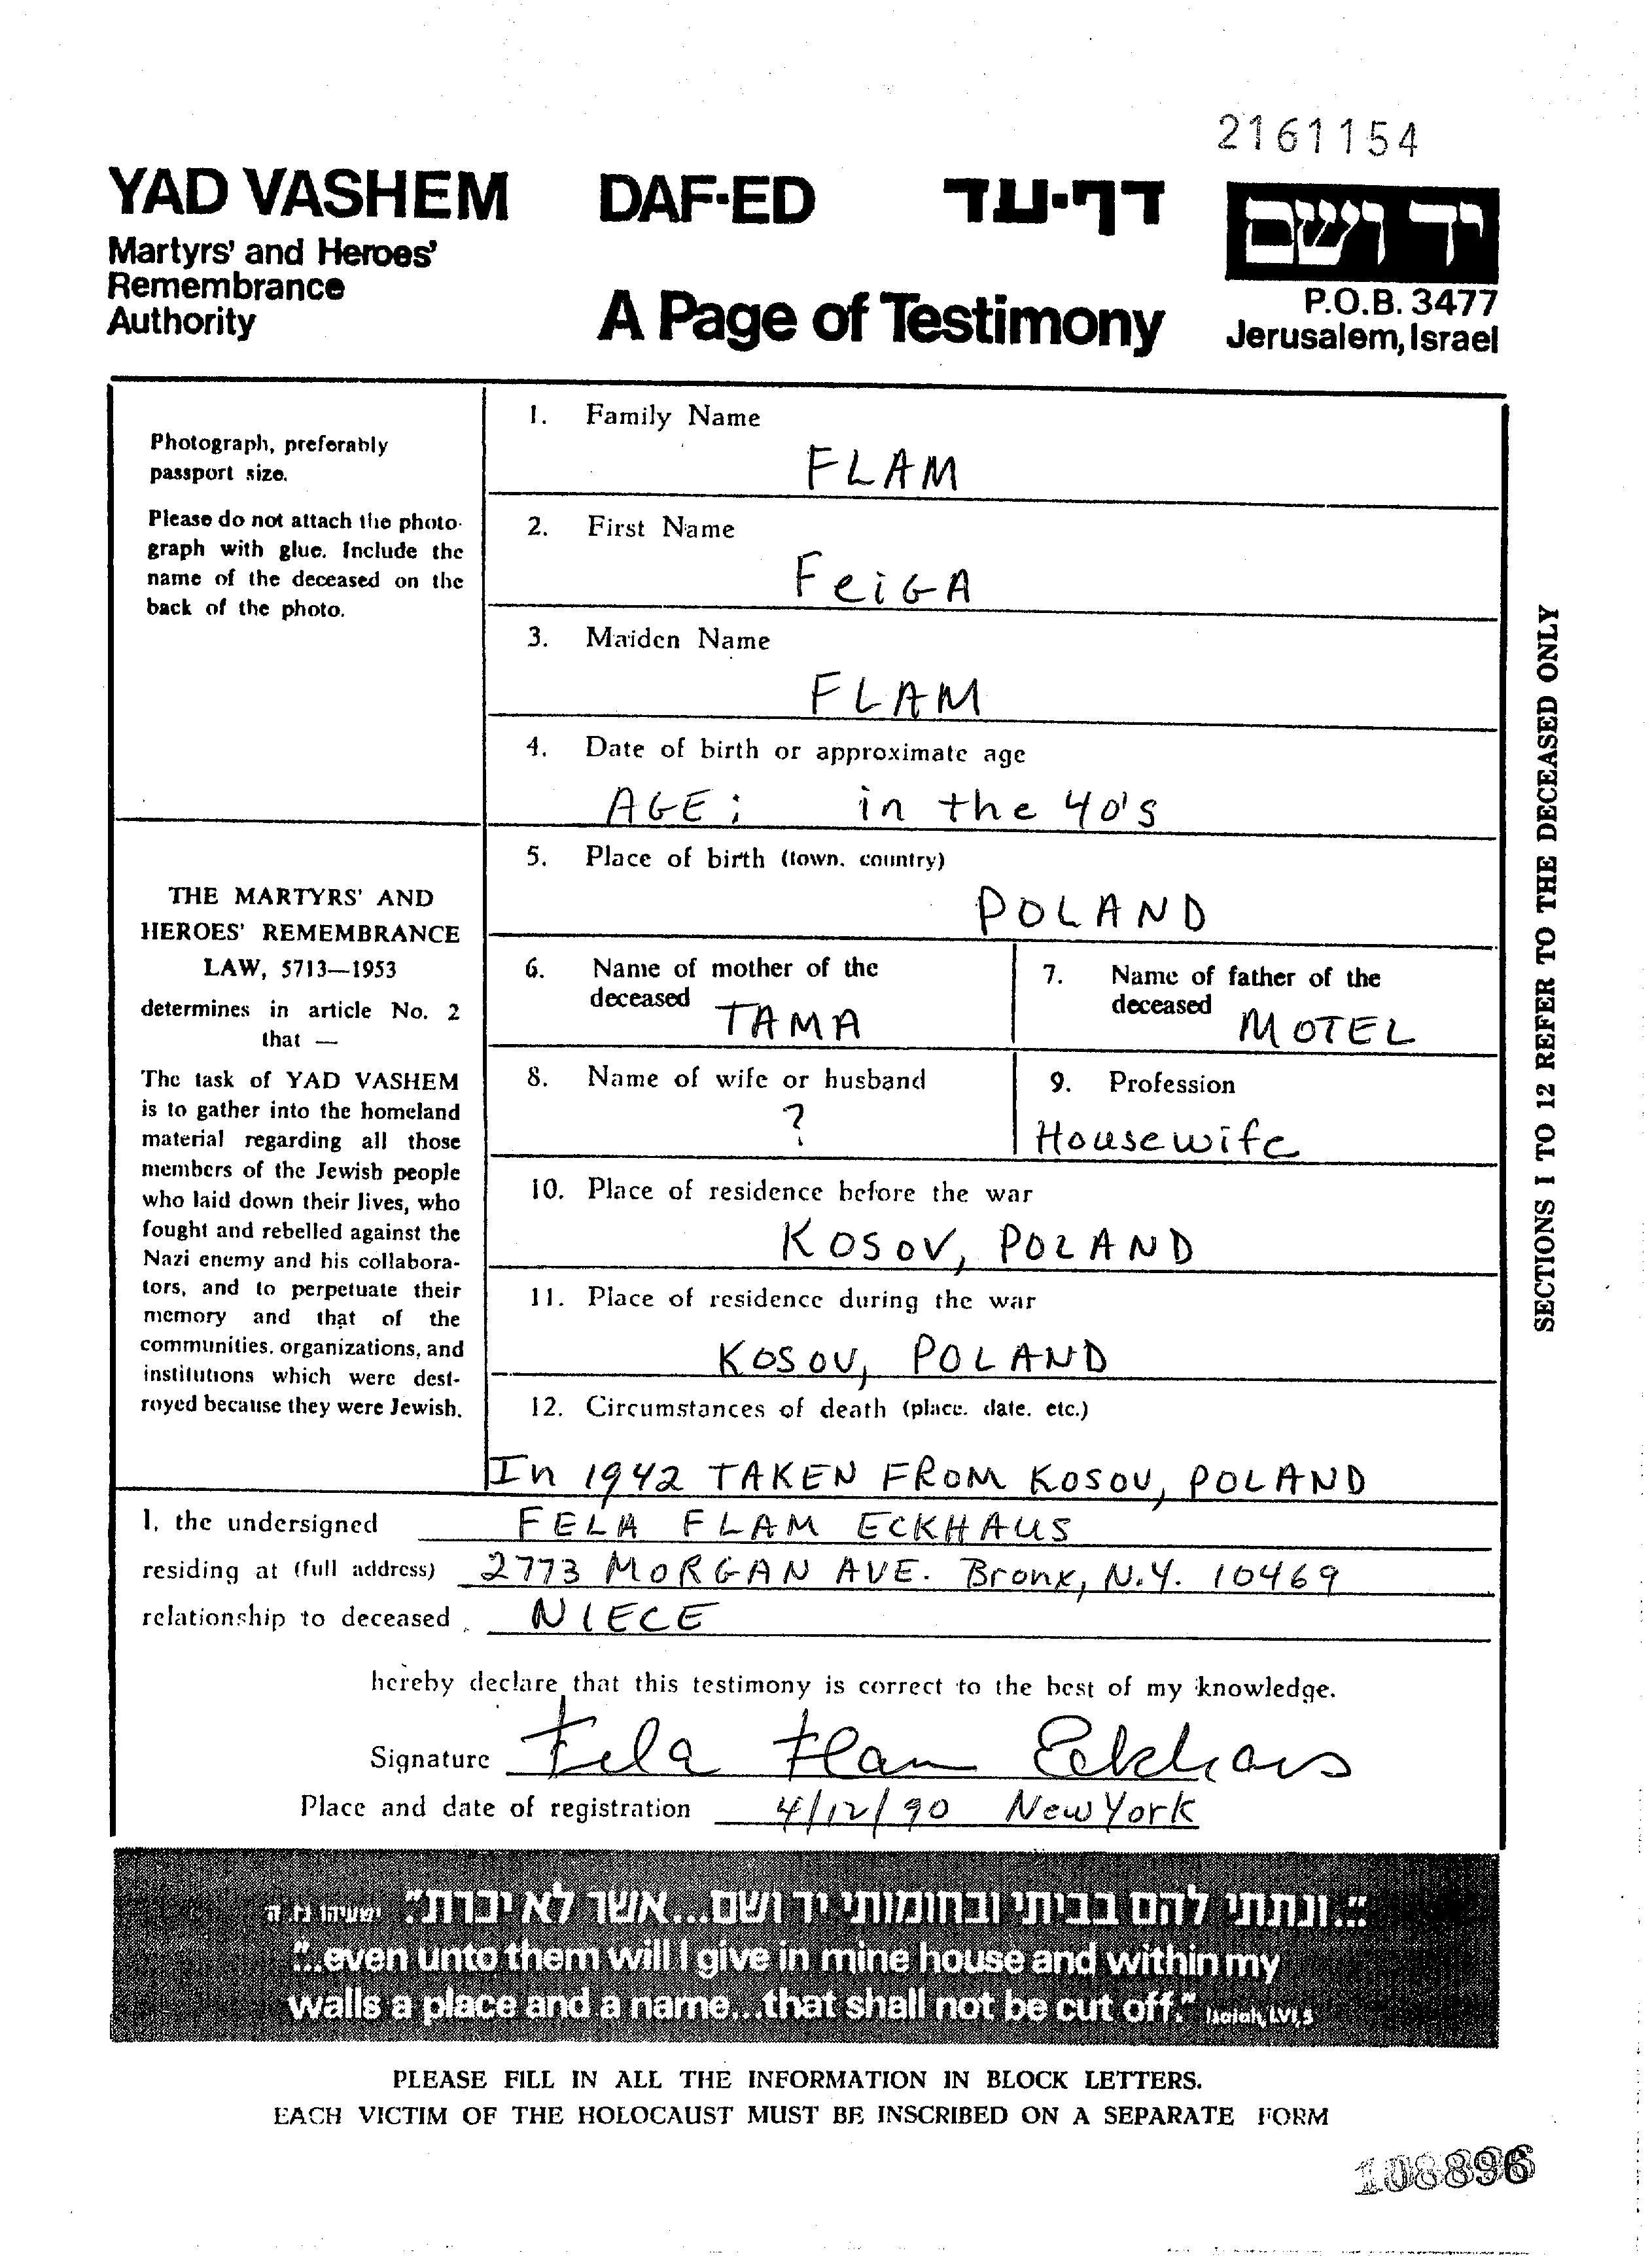 2161154
YAD VASHEM DAF-ED דף-עד יד ושם
Martyrs' and Heroes'
Remembrance
Authority
A Page of Testimony
P.O.B. 3477
Jerusalem, Israel
Photograph, preferably
passport size.
Please do not attach the photo-
graph with glue. Include the
name of the deceased on the
back of the photo.
THE MARTYRS' AND
HEROES' REMEMBRANCE
LAW, 5713—1953
determines in article No. 2
that —
The task of YAD VASHEM
is to gather into the homeland
material regarding all those
members of the Jewish people
who laid down their lives, who
fought and rebelled against the
Nazi enemy and his collabora-
tors, and to perpetuate their
memory and that of the
communities, organizations, and
institutions which were dest-
royed because they were Jewish.
1. Family Name
FLAM
2. First Name
FeiGA
3. Maiden Name
FLAM
4. Date of birth or approximate age
AGE; in the 40's
5. Place of birth (town, country)
POLAND
6. Name of mother of the
deceased TAMA
7. Name of father of the
deceased MOTEL
8. Name of wife or husband
?
9. Profession
Housewife
10. Place of residence before the war
KOSOV, POLAND
11. Place of residence during the war
KOSOV, POLAND
12. Circumstances of death (place, date, etc.)
In 1942 TAKEN FROM KOSOV, POLAND
SECTIONS 1 TO 12 REFER TO THE DECEASED ONLY
I, the undersigned FELA FLAM ECKHAUS
residing at (full address) 2773 MORGAN AVE. Bronx, N.Y. 10469
relationship to deceased NIECE
hereby declare that this testimony is correct to the best of my knowledge.
Signature Fela Flam Eckhaus
Place and date of registration 4/12/90 New York
"...ונתתי להם בביתי ובחומותי יד ושם...אשר לא יכרת." ישעיהו נו, ה
"...even unto them will I give in mine house and within my
walls a place and a name...that shall not be cut off." Isaiah, LVI,5
PLEASE FILL IN ALL THE INFORMATION IN BLOCK LETTERS.
EACH VICTIM OF THE HOLOCAUST MUST BE INSCRIBED ON A SEPARATE FORM
108896